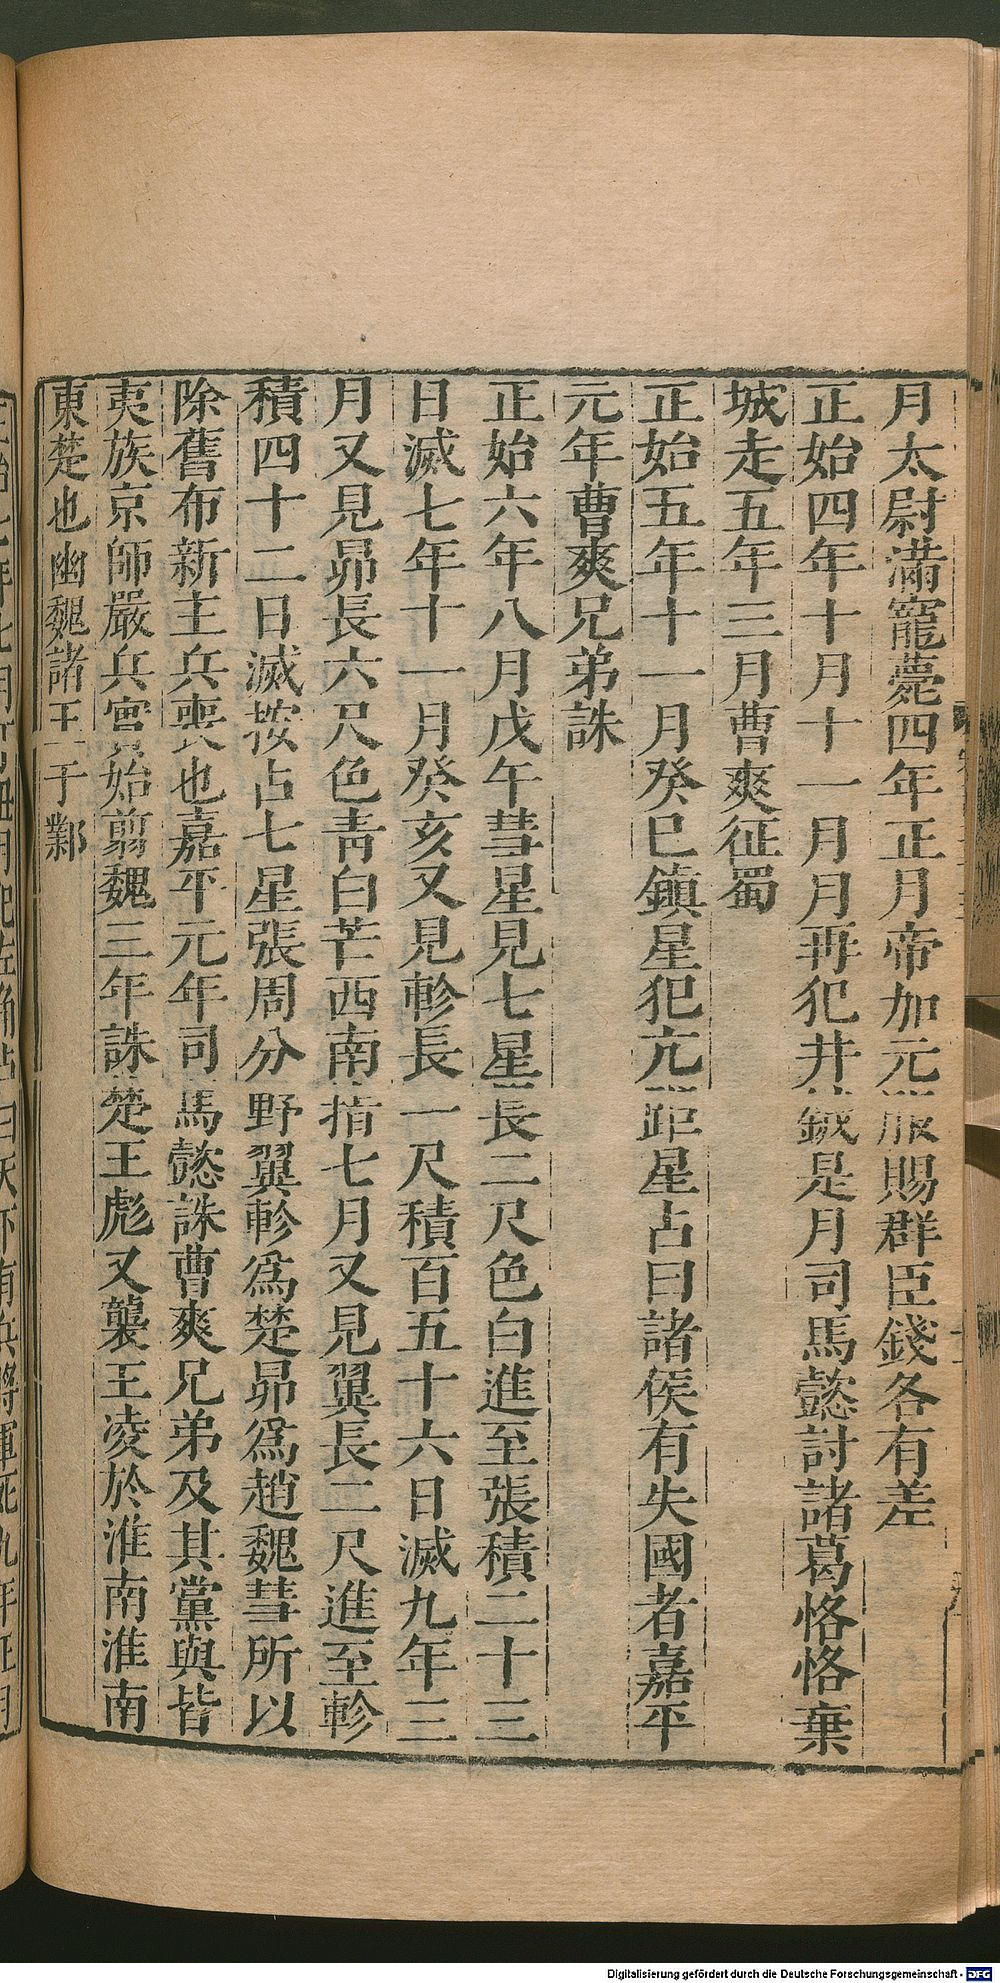 月太尉滿寵薨四年正月帝加元服賜群臣錢各有差
正始四年十月十一月月再犯井鉞是月司馬懿討諸葛恪恪棄
城走五年三月曹爽征蜀
正始五年十一月癸巳鎮星犯亢距星占曰諸侯有失國者嘉平
元年曹爽兄弟誅
正始六年八月戊午彗星見七星長二尺色白進至張積二十三
日滅七年十一月癸亥又見軫長一尺積百五十六日滅九年三
月又見昴長六尺色青白芒西南指七月又見翼長二尺進至軫
積四十二日滅按占七星張周分野翼軫為楚昴為趙魏彗所以
除舊布新主兵喪也嘉平元年司馬懿誅曹爽兄弟及其黨與皆
夷族京師嚴兵實始翦魏三年誅楚王彪又襲王凌於淮南淮南
東楚也幽魏諸王于鄴
Digitalisierung gefördert durch die Deutsche Forschungsgemeinschaft - DFG